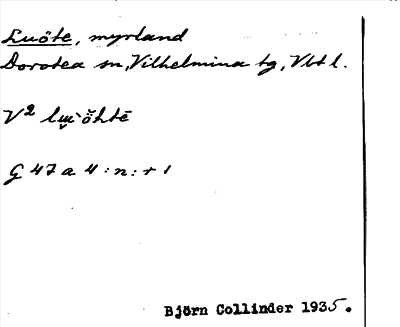 Luöte, myrland
Dorotea sn, Vilhelmina tg, Vbtl.
V2
G 47 a 4:n:r 1
Björn Collinder 1935.